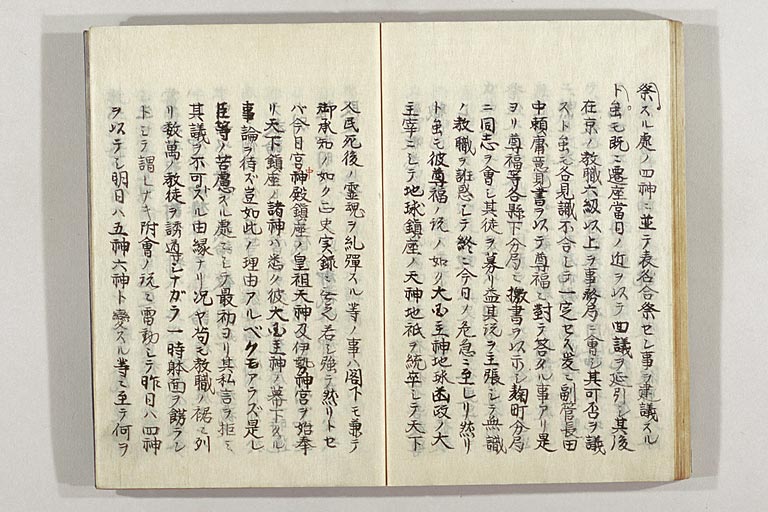 祭スル處ノ四神ニ並テ表名合祭セン事ヲ建議スル
ト虽モ既ニ遷座當日ノ近ヲ以テ回議ヲ延引シ其後
在京ノ教職六級以上ヲ事務局ニ會シ其可否ヲ議
スト虽モ各見識不合シテ一定セス爰ニ副管長田
中頼庸意見書ヲ以テ尊福ニ對テ答タル事アリ是
ヨリ尊福等各縣下分局ニ檄書ヲ以示シ麹町分局
ニ同志ヲ會シ其徒ヲ募リ益其説ヲ主張シテ無識
ノ教職ヲ誑惑シテ終ニ今日ノ危急ニ至レリ然リ
ト虽モ彼尊福ノ説ノ如ク大国主神地球幽政ノ大
主宰ニシテ地球鎮座ノ天神地祇ヲ統卒シテ天下
人民死後ノ霊魂ヲ糺彈スル等ノ事ハ閣下モ兼テ
御承知ノ如ク正史実録ニ無之若シ強テ然リトセ
バ今日宮中神殿鎮座ノ皇祖天神及伊勢神宮ヲ始奉
リ天下鎮座ノ諸神ハ悉ク彼大国主神ノ幕下タル
事論ヲ待ズ豈如此ノ理由アルベクモアラズ是レ
臣等ノ苦慮スル處ニシテ最初ヨリ其私言ヲ拒ミ
其議ヲ不可トスル由縁ナリ况ヤ苟モ教職ノ裾ニ列
リ数萬ノ教徒ヲ誘導シナガラ一時躰面ヲ餝ラン
トシテ謂レナキ附會ノ説ニ雷動シテ昨日ハ四神
ヲ以テシ明日ハ五神六神ト變スル等ニ至テ何ヲ